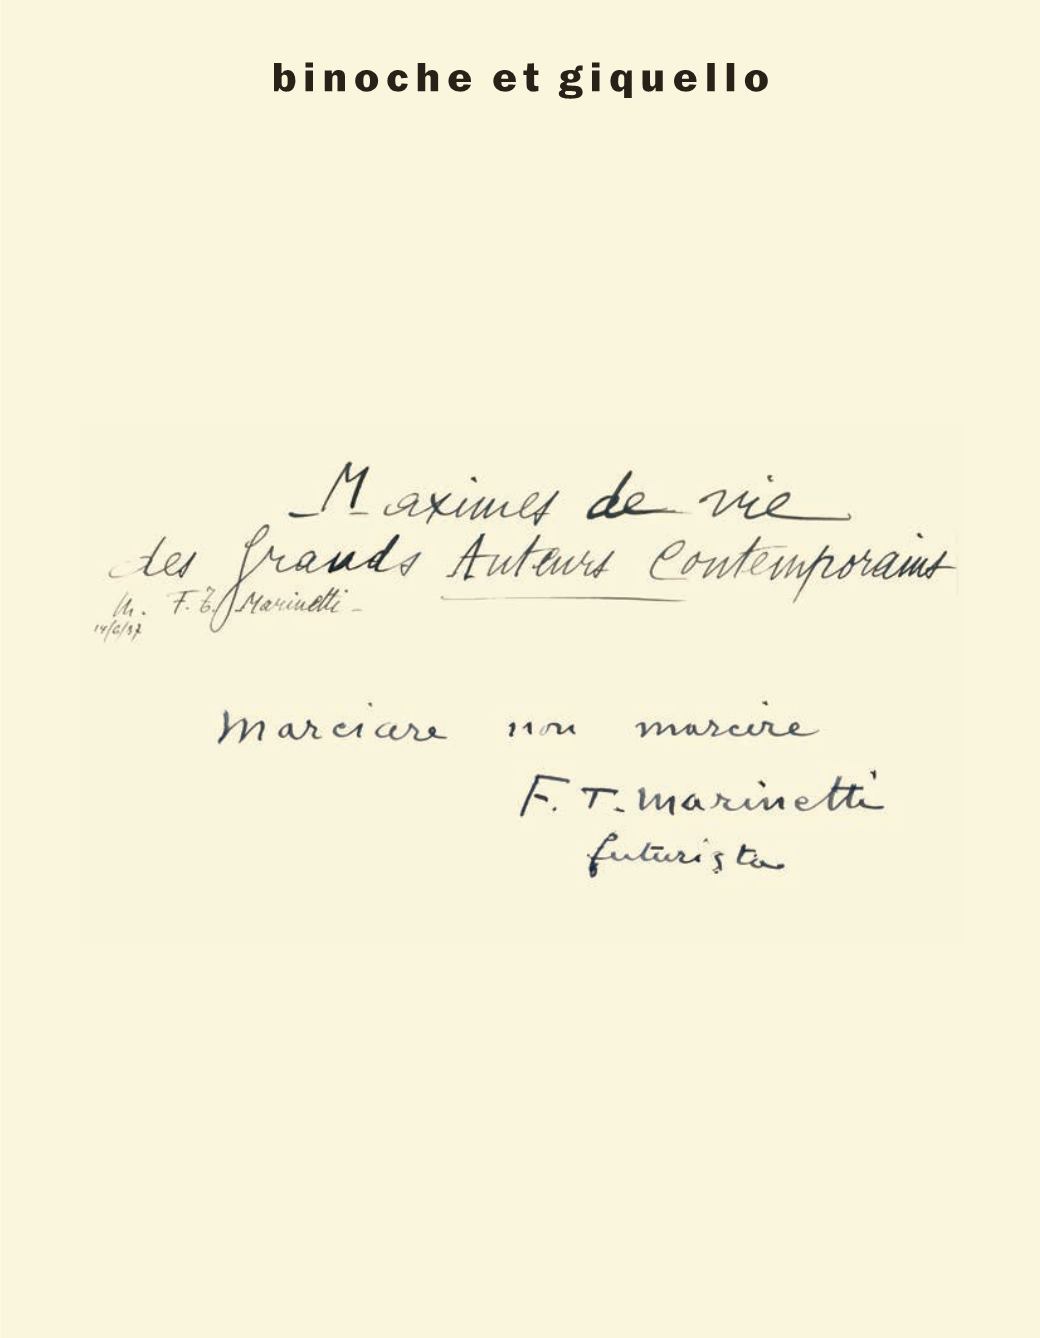 binoche et giquello
Maximes de vie
des Grands Auteurs Contemporains
M. F. T. Marinetti -
14/6/37
Marciare non marcire
F. T. Marinetti
futurista